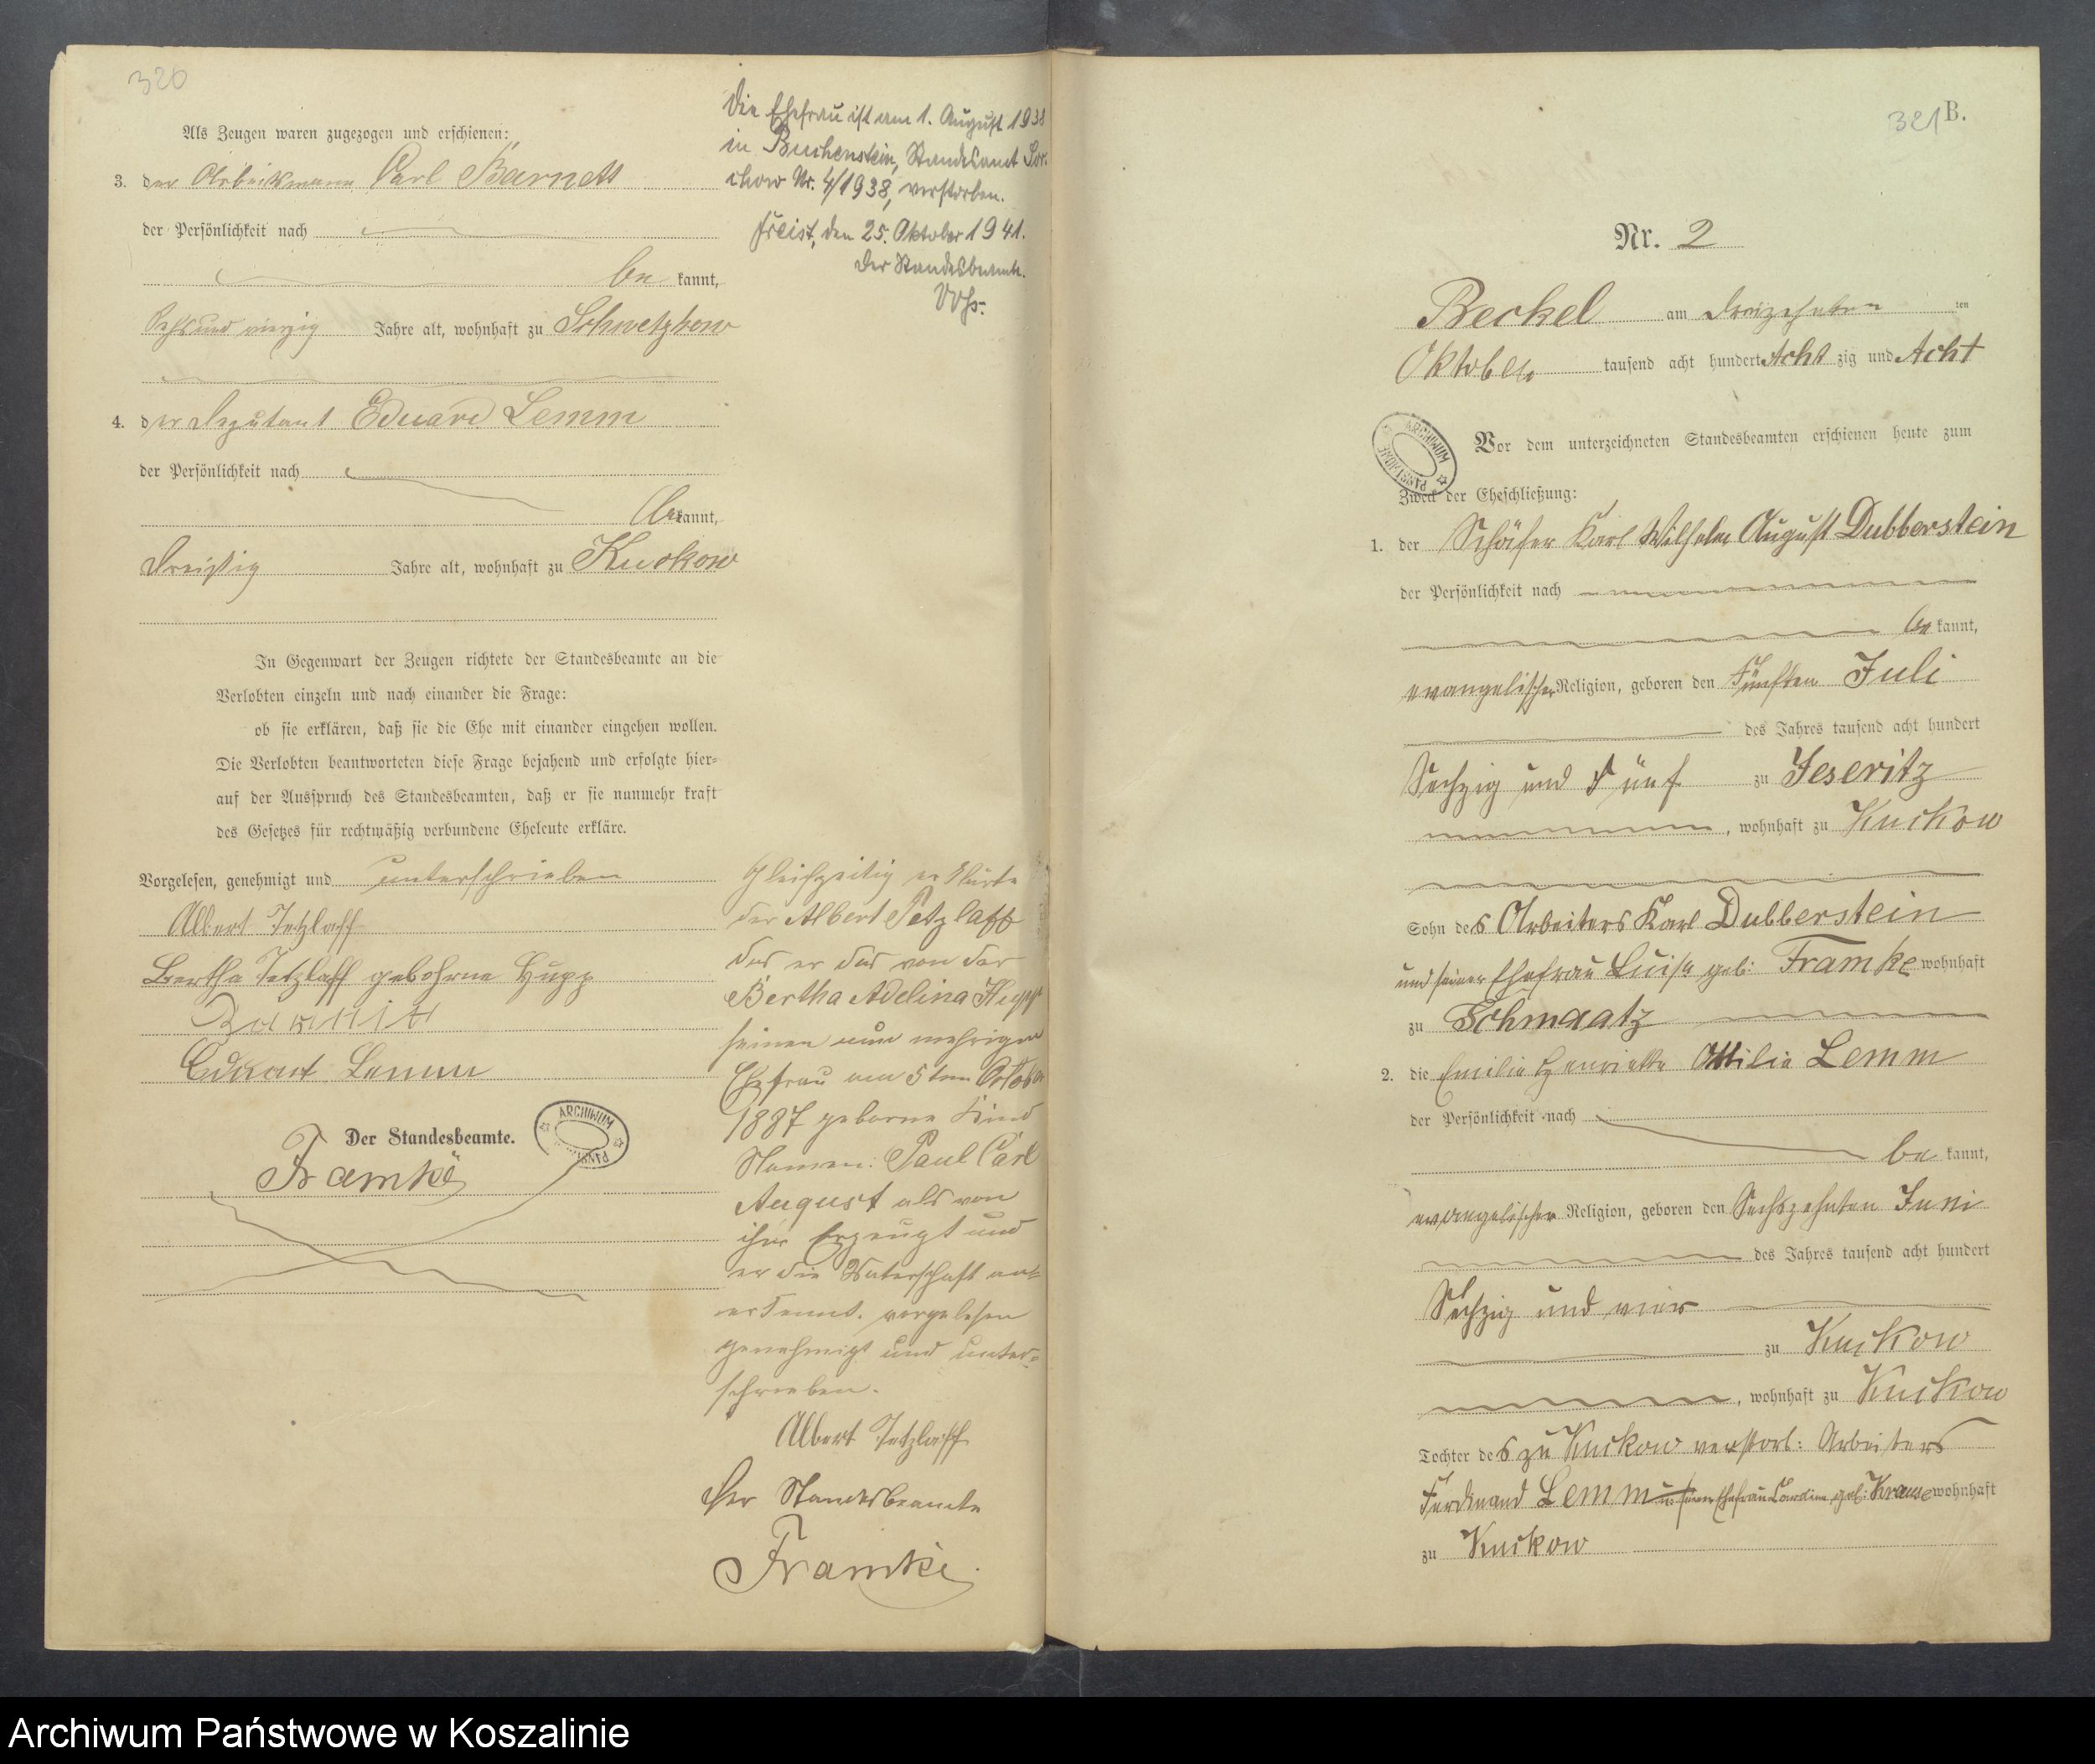 320
Als Zeugen waren zugezogen und erschienen:
3. der Arbeitsmann Carl Barnett
der Persönlichkeit nach
be kannt,
Sechs und vierzig Jahre alt, wohnhaft zu Schwetzkow
4. der Deputant Eduard Lemm
der Persönlichkeit nach
be kannt,
Dreißig Jahre alt, wohnhaft zu Kuckow
In Gegenwart der Zeugen richtete der Standesbeamte an die
Verlobten einzeln und nach einander die Frage:
ob sie erklären, daß sie die Ehe mit einander eingehen wollen.
Die Verlobten beantworteten diese Frage bejahend und erfolgte hier-
auf der Ausspruch des Standesbeamten, daß er sie nunmehr kraft
des Gesetzes für rechtmäßig verbundene Eheleute erkläre.
Vorgelesen, genehmigt und unterschrieben
Albert Tetzlaff
Bertha Tetzlaff gebohrne Hupp
Eduart Lemm
Der Standesbeamte.
Framke
ARCHIWUM PAŃSTW
Die Ehefrau ist am 1. August 1938
in Buchenstein, Standesamt Sor-
chow Nr. 4/1938, verstorben.
Freist, den 25. Oktober 1941.
Der Standesbeamte.
Gleichzeitig erklärte
der Albert Tetzlaff
das er das von der
Bertha Adelina Hupp
seinen nun mehrigen
Ehefrau am 5ten Oktober
1887 geborne Kind
Namen: Paul Carl
August als von
ihm Erzeugt und
er die Vaterschaft an-
erkennt. vorgelesen
genehmigt und unter-
schrieben.
Albert Tetzlaff
Der Standesbeamte
Framke.
321 B.
Nr. 2
Beckel am Dreizehnten ten
Oktober tausend acht hundert Acht zig und Acht
ARCHIWUM PAŃSTWOWE
Vor dem unterzeichneten Standesbeamten erschienen heute zum
Zweck der Eheschließung:
1. der Schäfer Karl Wilhelm August Dubberstein
der Persönlichkeit nach
be kannt,
evangelischer Religion, geboren den Fünften Juli
des Jahres tausend acht hundert
Sechzig und Fünf zu Jeseritz
, wohnhaft zu Kuckow
Sohn des Arbeiters Karl Dubberstein
und seiner Ehefrau Luise geb: Framke wohnhaft
zu Schmaatz
2. die Emilie Henriette Ottilie Lemm
der Persönlichkeit nach
be kannt,
evangelischer Religion, geboren den Sechszehnten Juni
des Jahres tausend acht hundert
Sechzig und vier
zu Kuckow
, wohnhaft zu Kuckow
Tochter des zu Kuckow verstorb: Arbeiters
Ferdinand Lemm u: seiner Ehefrau Caroline geb: Krause wohnhaft
zu Kuckow
Archiwum Państwowe w Koszalinie